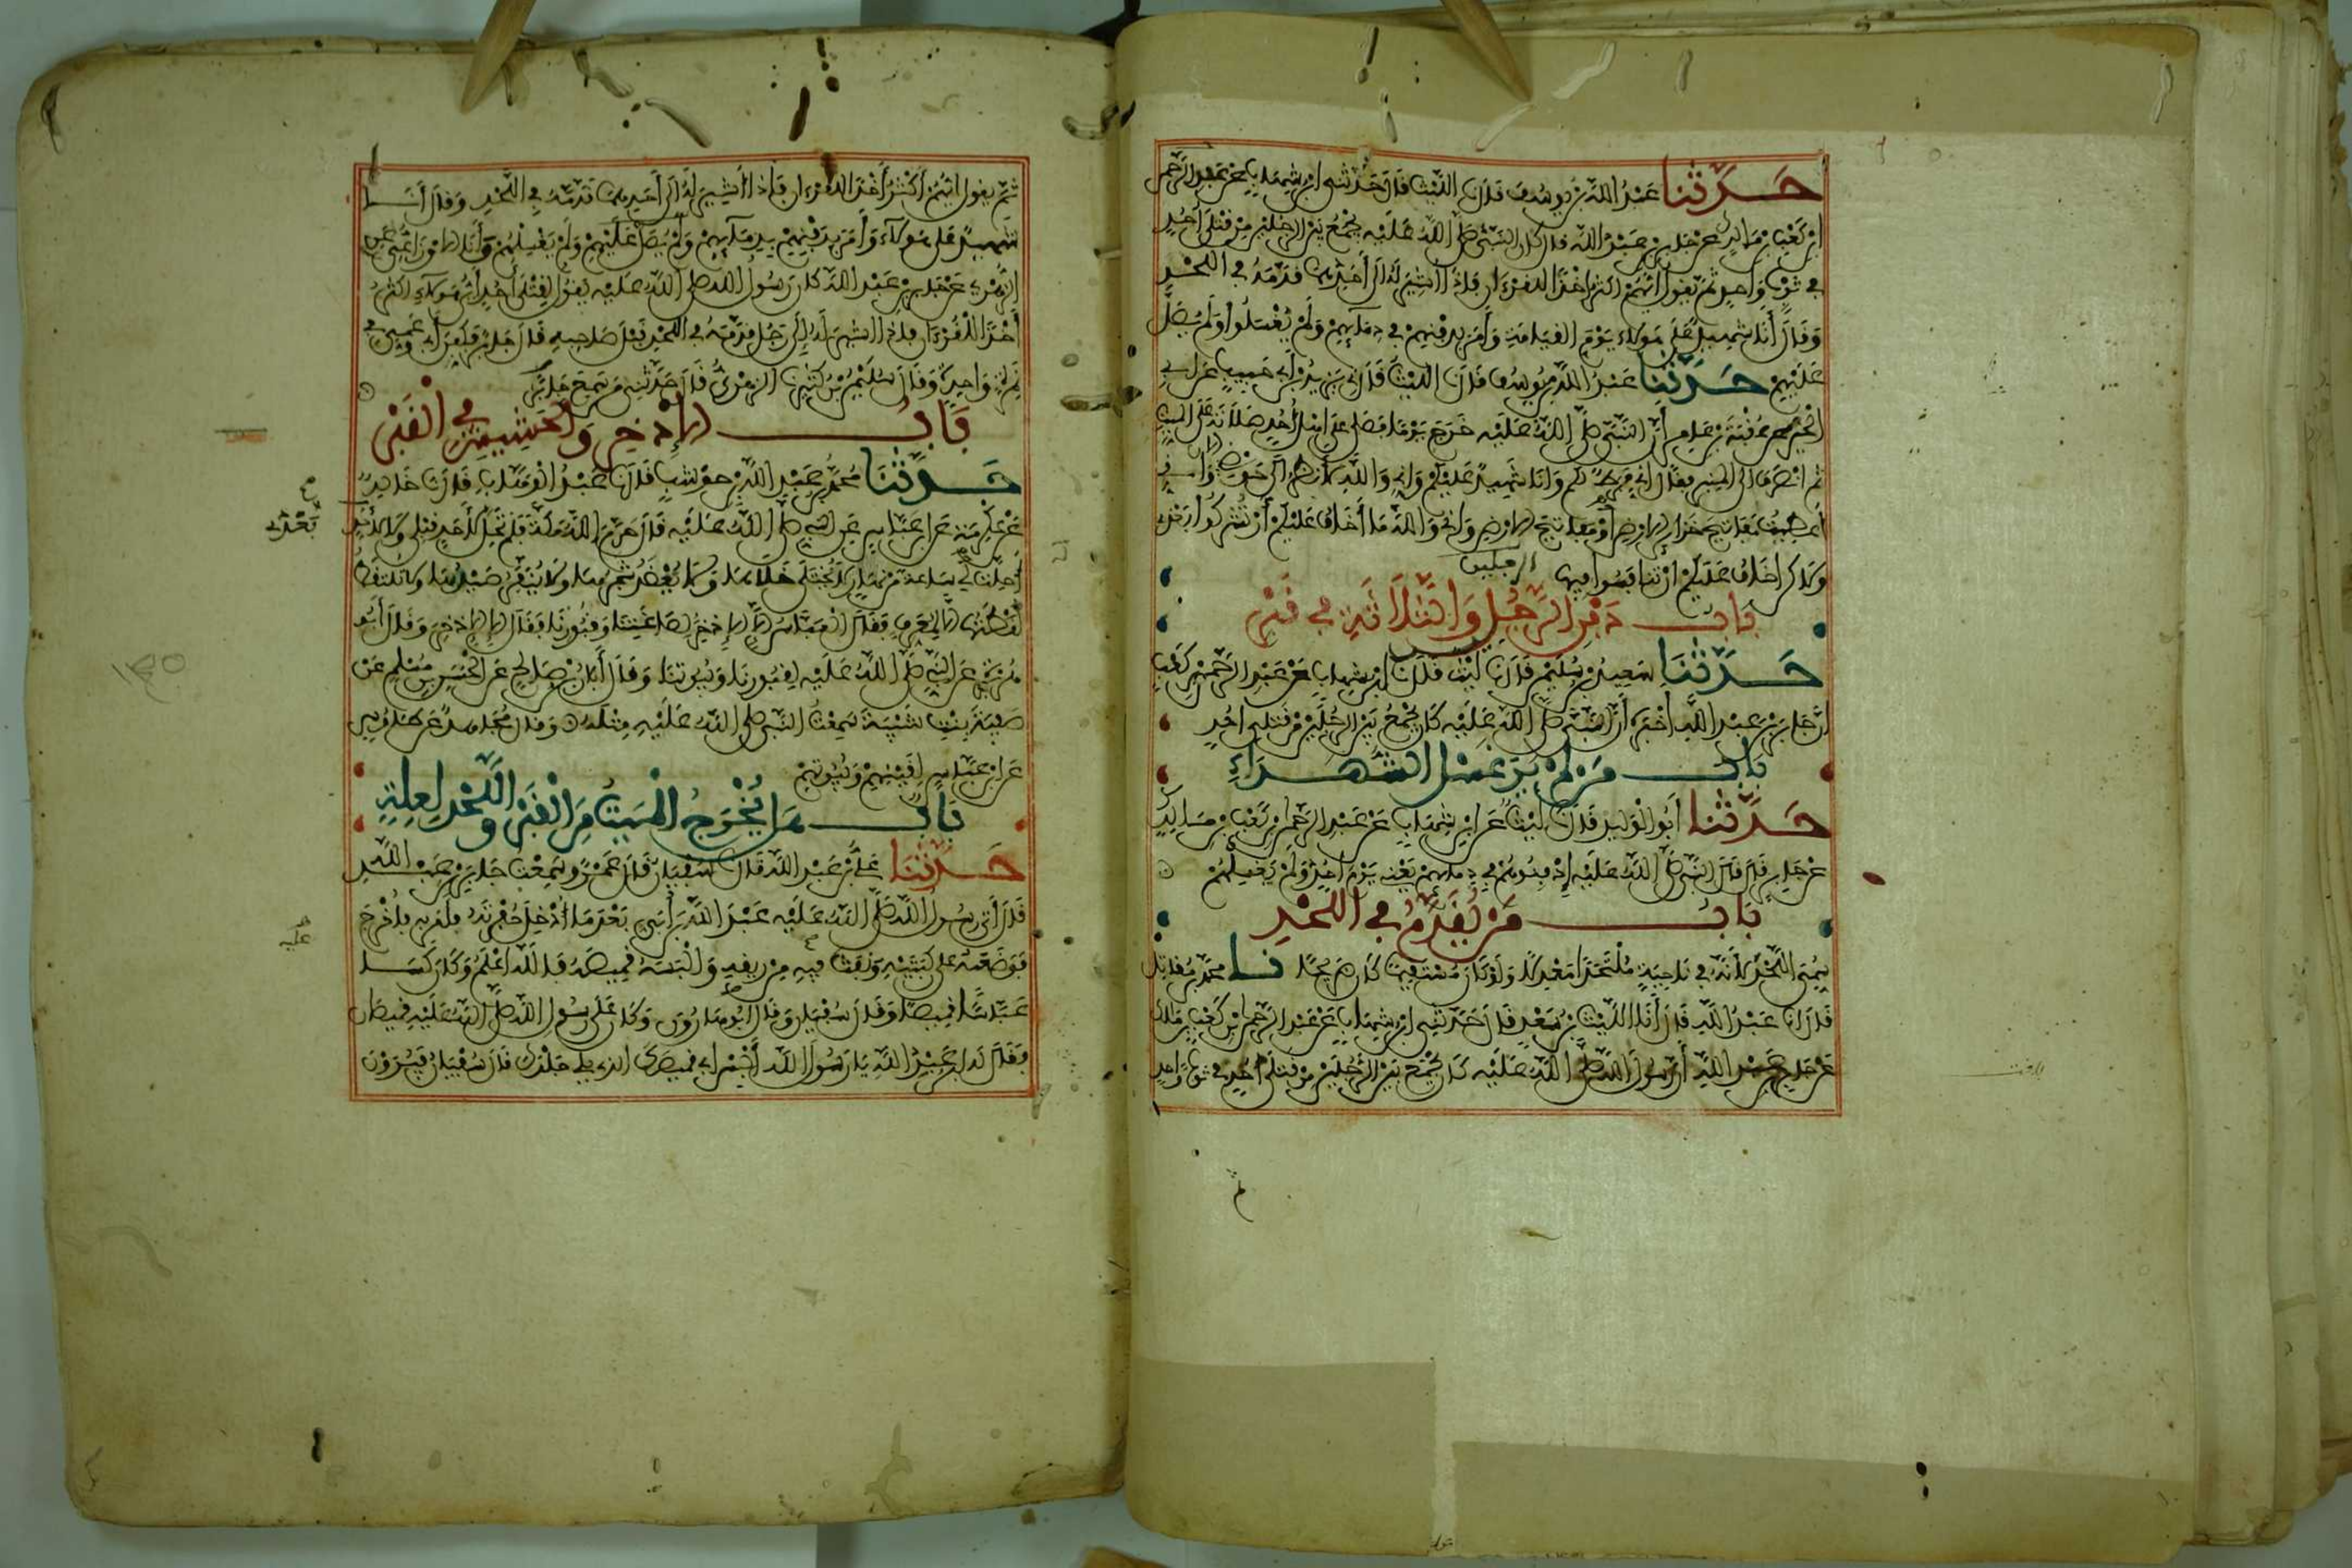 حدثنا عبد الله بن يوسف قال نا الليث قال حدثني ابن شهاب عن عبد الرحمن
ابن كعب بن مالك عن جابر بن عبد الله قال كان النبي صلى الله عليه يجمع بين الرجلين من قتلى أحد
في ثوب واحد ثم يقول أيهم أكثر أخذا للقرءان فإذا أشير له إلى أحدهما قدمه في اللحد
وقال أنا شهيد على هؤلاء يوم القيامة وأمر بدفنهم في دمائهم ولم يغسلوا ولم يصل
عليهم حدثنا عبد الله بن يوسف قال نا الليث قال ني يزيد بن أبي حبيب عن أبي
الخير عن عقبة بن عامر أن النبي صلى الله عليه خرج يوما فصلى على أهل أحد صلاته على الميت
ثم انصرف إلى المنبر فقال إني فرط لكم وأنا شهيد عليكم وإني والله لأنظر إلى حوضي الآن وإني
أعطيت مفاتيح خزائن الأرض أو مفاتيح الأرض وإني والله ما أخاف عليكم أن تشركوا بعدي
ولكن أخاف عليكم أن تنافسوا فيها
الرجلين
باب دفن الرجل والثلاثة في قبر
حدثنا سعيد بن سليمن قال نا ليث قال نا ابن شهاب عن عبد الرحمن بن كعب
أن جابر بن عبد الله أخبره أن النبي صلى الله عليه كان يجمع بين الرجلين من قتلى أحد
باب من لم ير غسل الشهداء
حدثنا أبو الوليد قال نا ليث عن ابن شهاب عن عبد الرحمن بن كعب بن مالك
عن جابر قال قال النبي صلى الله عليه ادفنوهم في دمائهم يعني يوم أحد ولم يغسلهم
باب من يقدم في اللحد
سمي اللحد لأنه في ناحية ملتحدا معدلا ولو كان مستقيما كان ضريحا نا محمد بن مقاتل
قال أنا عبد الله قال أنا الليث بن سعد قال حدثني ابن شهاب عن عبد الرحمن بن كعب بن مالك
عن جابر بن عبد الله أن رسول الله صلى الله عليه كان يجمع بين الرجلين من قتلى أحد في ثوب واحد
ثم يقول أيهم أكثر أخذا للقرءان فإذا أشير له إلى أحدهما قدمه في اللحد وقال أنا
شهيد على هؤلاء وأمر بدفنهم بدمائهم ولم يصل عليهم ولم يغسلهم وأنا الأوزاعي عن
الزهري عن جابر بن عبد الله كان رسول الله صلى الله عليه يقول لقتلى أحد أي هؤلاء أكثر
أخذا للقرءان فإذا أشير له إلى رجل قدمه في اللحد قبل صاحبه قال جابر فكفن أبي وعمي في
نمرة واحدة وقال سليمن بن كثير نا الزهري قال حدثني من سمع جابرا
باب الإذخر والحشيش في القبر
حدثنا محمد بن عبد الله بن حوشب قال نا عبد الوهاب قال نا خالد
عن عكرمة عن ابن عباس عن النبي صلى الله عليه قال حرم الله مكة فلم تحل لأحد قبلي ولا لأحد
بعدي
أحلت لي ساعة من نهار لا يختلى خلاها ولا يعضد شجرها ولا ينفر صيدها ولا تلتقط
لقطتها إلا لمعرف فقال العباس إلا الإذخر لصاغتنا وقبورنا فقال إلا الإذخر وقال أبو
هريرة عن النبي صلى الله عليه لقبورنا وبيوتنا وقال أبان بن صالح عن الحسن بن مسلم عن
صفية بنت شيبة سمعت النبي صلى الله عليه مثله وقال مجاهد عن طاوس
عن ابن عباس لقينهم وبيوتهم
باب هل يخرج الميت من القبر واللحد لعلة
حدثنا علي بن عبد الله قال نا سفيان قال عمرو سمعت جابر بن عبد الله
قال أتى رسول الله صلى الله عليه عبد الله بن أبي بعدما أدخل حفرته فأمر به فأخرج
فوضعه على ركبتيه ونفث فيه من ريقه وألبسه قميصه فالله أعلم وكان كسا
عباسا قميصا وقال سفيان وقال أبو هارون وكان على رسول الله صلى الله عليه قميصان
فقال له ابن عبد الله يا رسول الله ألبس أبي قميصك الذي يلي جلدك قال سفيان فيرون